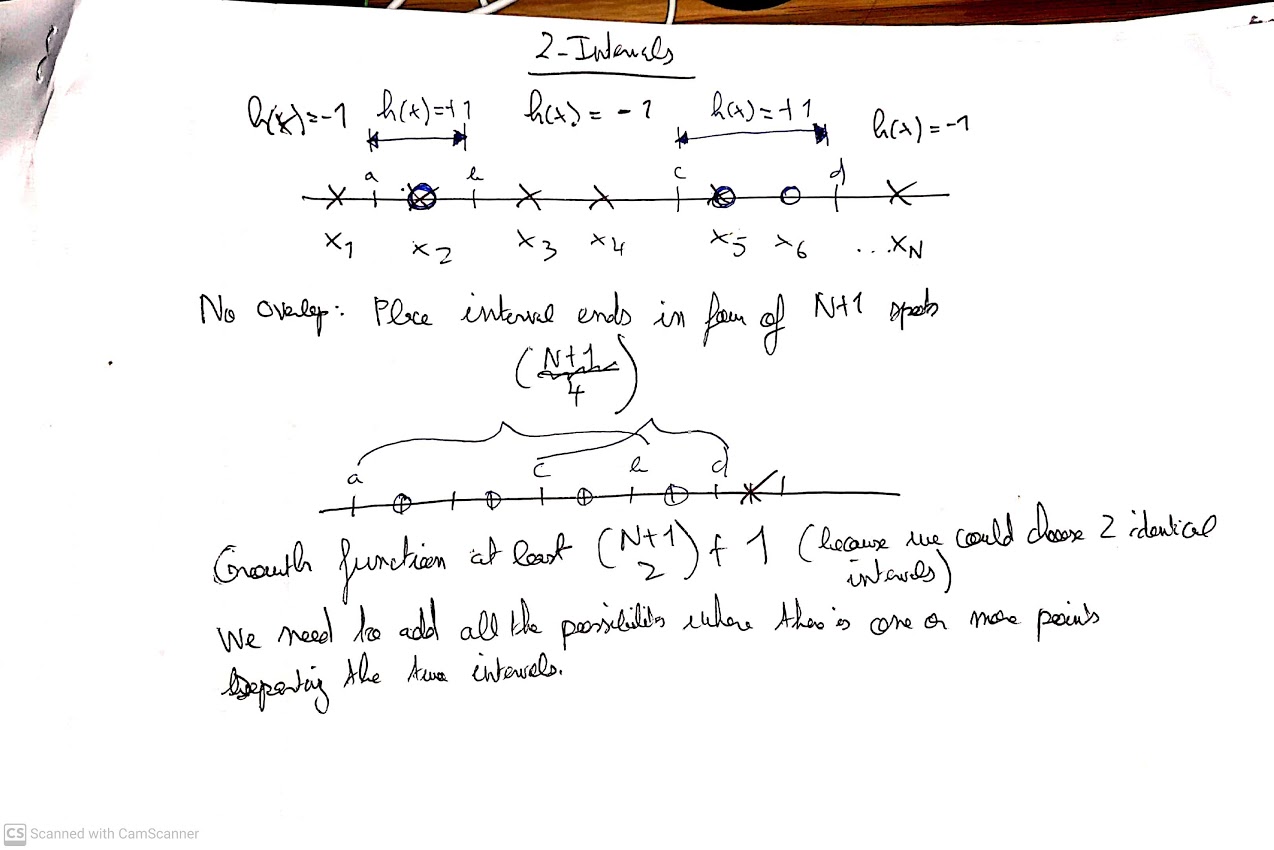 2-Intervals
h(x)=-1 h(x)=+1 h(x) = -1 h(x) = +1 h(x) = -1
a b c d
x1 x2 x3 x4 x5 x6 ...xN
No overlap: Place interval ends in four of N+1 spots
(N+1 4)
a c b d
Growth function at least (N+1 2) + 1 (because we could choose 2 identical
intervals)
We need to add all the possibilities where there is one or more points
separating the two intervals.
CS Scanned with CamScanner